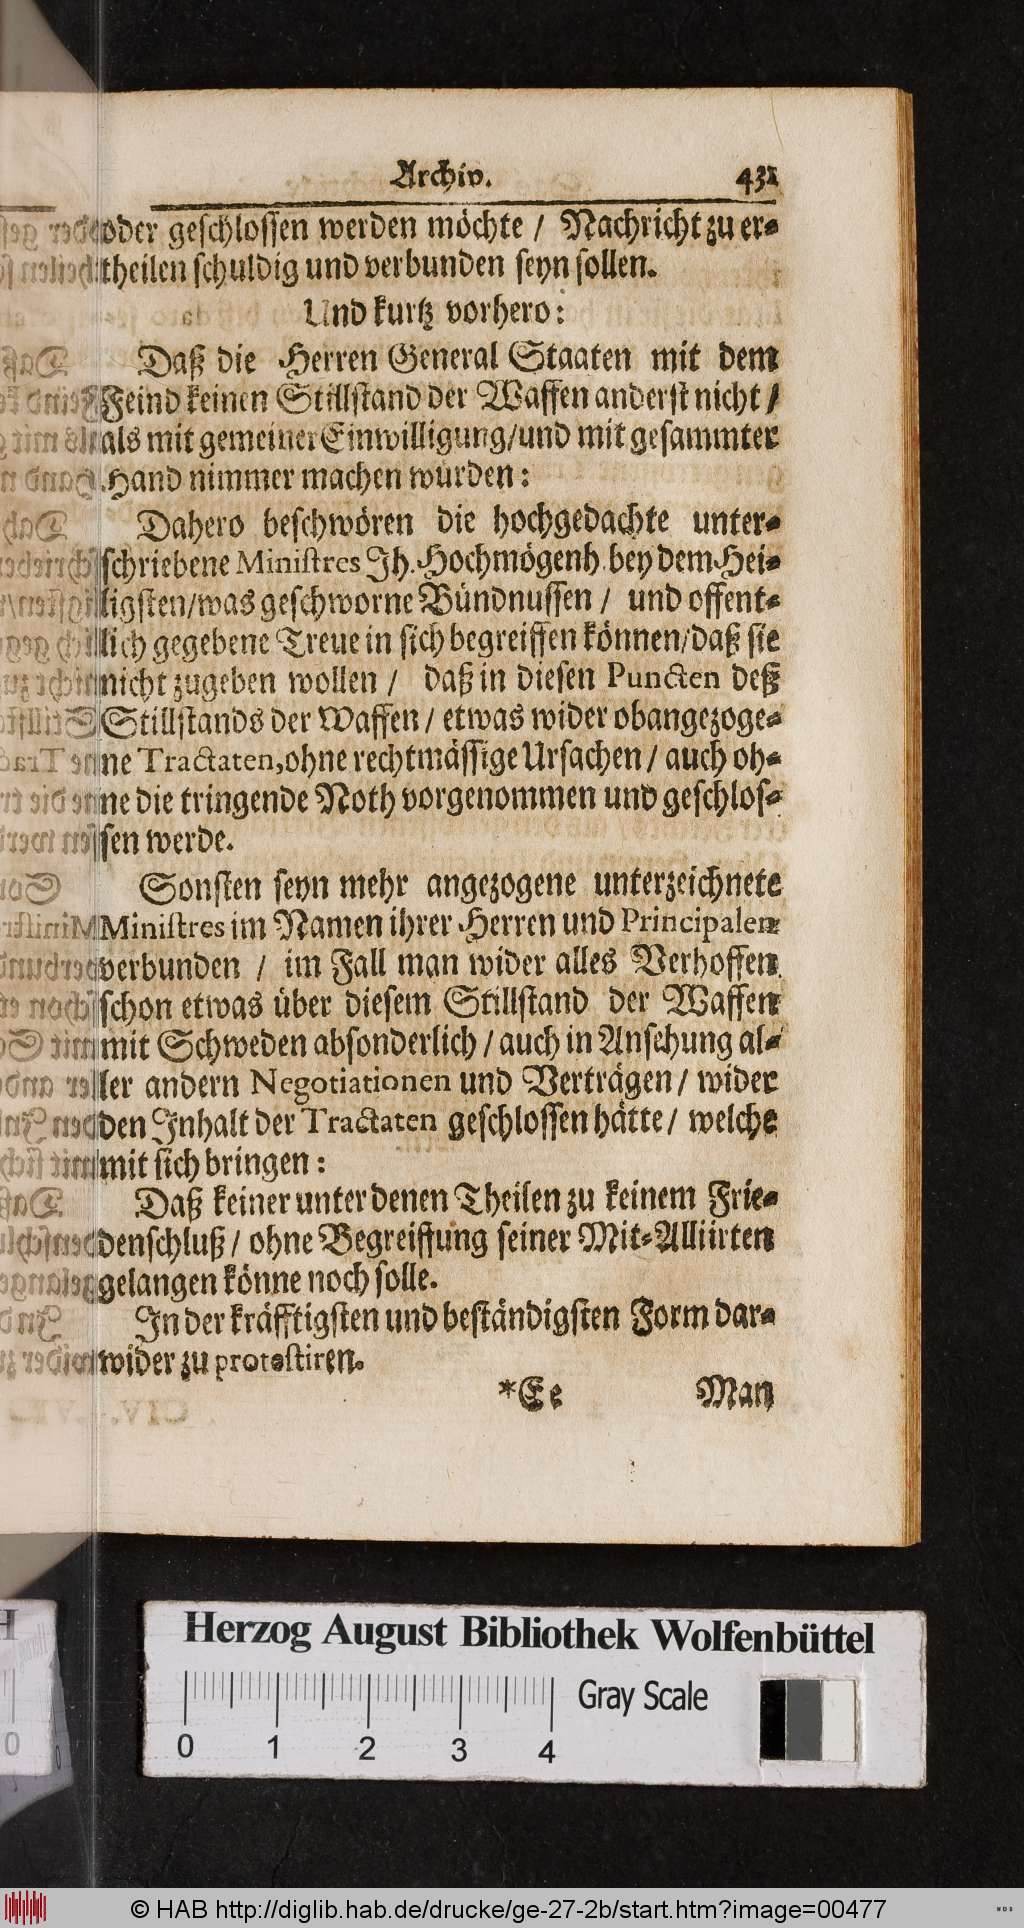 Archiv. 431
oder geschlossen werden möchte / Nachricht zu er-
theilen schuldig und verbunden seyn sollen.
Und kurtz vorhero:
Daß die Herren General Staaten mit dem
Feind keinen Stillstand der Waffen anderst nicht /
als mit gemeiner Einwilligung/und mit gesammter
Hand nimmer machen würden:
Dahero beschwören die hochgedachte unter-
schriebene Ministres Jh. Hochmögenh. bey dem Hei-
ligsten/was geschworne Bündnussen / und offent-
lich gegebene Treue in sich begreiffen können/daß sie
nicht zugeben wollen / daß in diesen Puncten deß
Stillstands der Waffen / etwas wider obangezoge-
ne Tractaten,ohne rechtmässige Ursachen / auch oh-
ne die tringende Noth vorgenommen und geschlos-
sen werde.
Sonsten seyn mehr angezogene unterzeichnete
Ministres im Namen ihrer Herren und Principalen
verbunden / im Fall man wider alles Verhoffen
schon etwas über diesem Stillstand der Waffen
mit Schweden absonderlich / auch in Ansehung al-
ler andern Negotiationen und Verträgen / wider
den Jnhalt der Tractaten geschlossen hätte / welche
mit sich bringen:
Daß keiner unter denen Theilen zu keinem Frie-
denschluß / ohne Begreiffung seiner Mit-Alliirten
gelangen könne noch solle.
Jn der kräfftigsten und beständigsten Form dar-
wider zu protestiren.
*Ee Man
Herzog August Bibliothek Wolfenbüttel
Gray Scale
0 1 2 3 4
© HAB http://diglib.hab.de/drucke/ge-27-2b/start.htm?image=00477